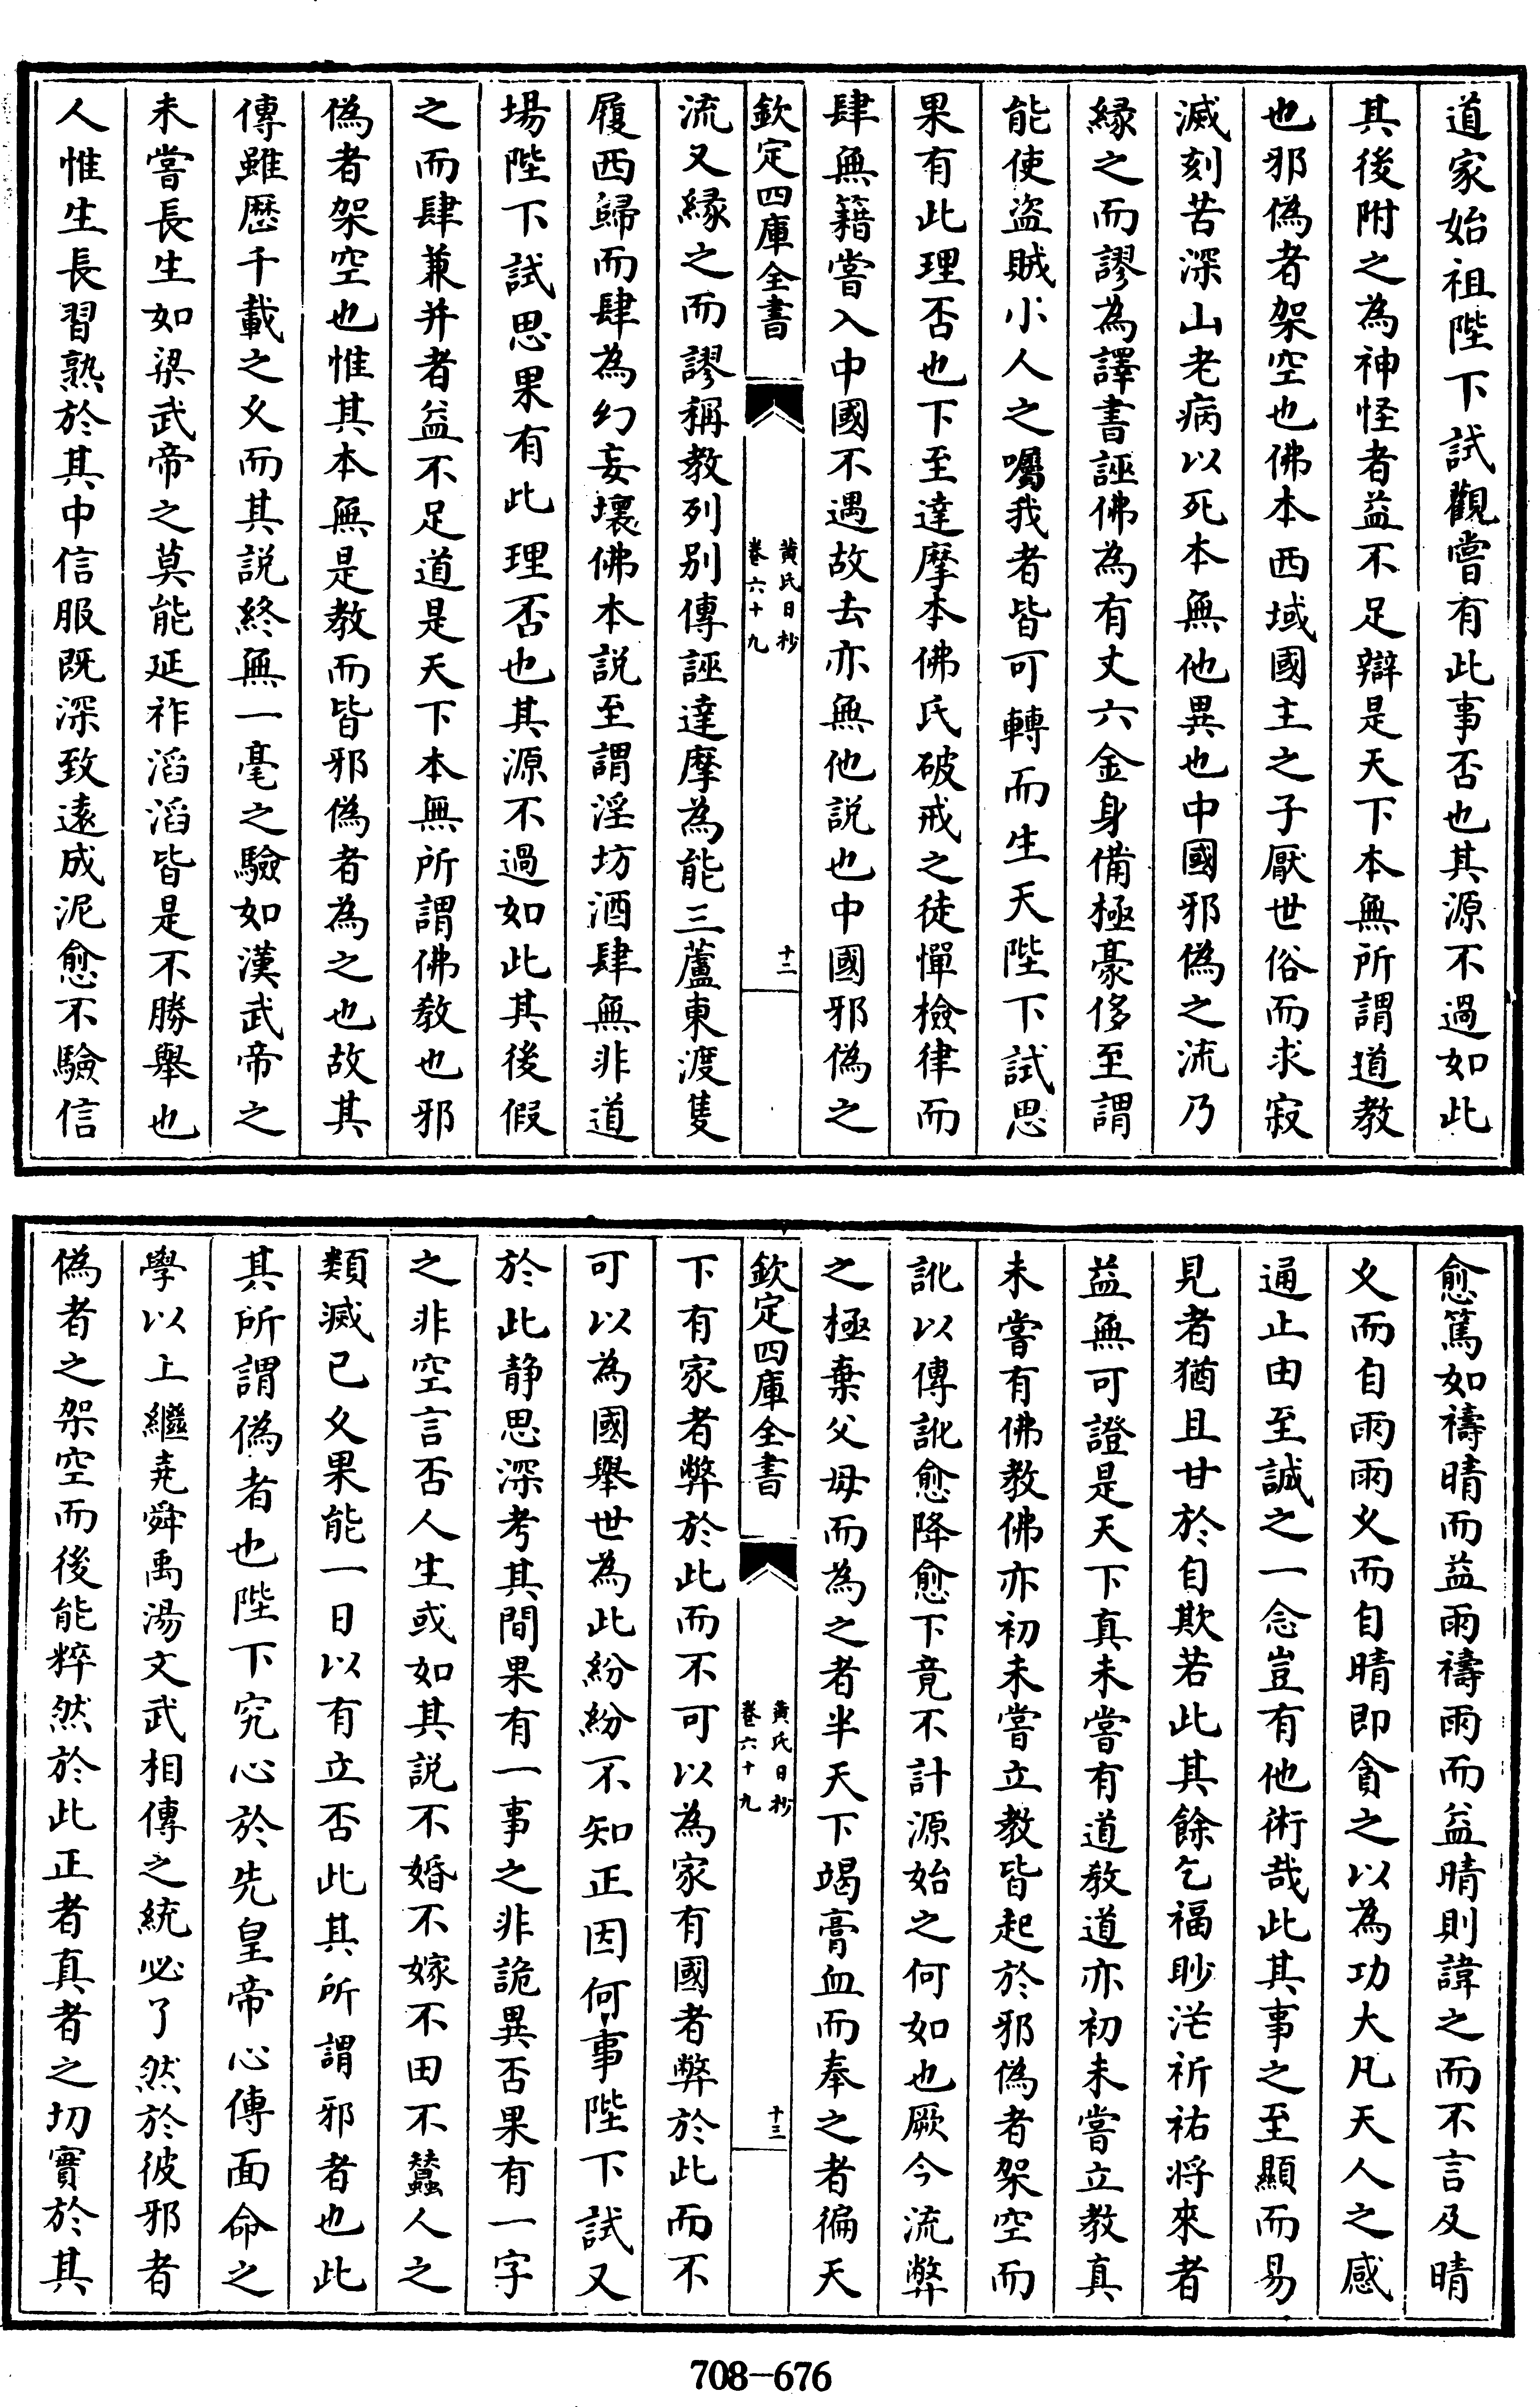 道家始祖陛下試觀嘗有此事否也其源不過如此
其後附之為神怪者益不足辯是天下本無所謂道教
也邪偽者架空也佛本西域國主之子厭世俗而求寂
滅刻苦深山老病以死本無他異也中國邪偽之流乃
縁之而謬為譯書誣佛為有丈六金身備極豪侈至謂
能使盜賊小人之囑我者皆可轉而生天陛下試思
果有此理否也下至達摩本佛氏破戒之徒憚檢律而
肆無籍嘗入中國不遇故去亦無他説也中國邪偽之
欽定四庫全書
黄氏日抄
卷六十九
十二
流又縁之而謬稱教列别傳誣達摩為能三蘆東渡隻
履西歸而肆為幻妄壞佛本説至謂淫坊酒肆無非道
場陛下試思果有此理否也其源不過如此其後假
之而肆兼并者益不足道是天下本無所謂佛教也邪
偽者架空也惟其本無是教而皆邪偽者為之也故其
傳雖歴千載之久而其説終無一毫之驗如漢武帝之
未嘗長生如梁武帝之莫能延祚滔滔皆是不勝舉也
人惟生長習熟於其中信服既深致遠成泥愈不驗信
愈篤如禱晴而益雨禱雨而益晴則諱之而不言及晴
久而自雨雨久而自晴即貪之以為功大凡天人之感
通止由至誠之一念豈有他術哉此其事之至顯而易
見者猶且甘於自欺若此其餘乞福眇茫祈祐将來者
益無可證是天下真未嘗有道教道亦初未嘗立教真
未嘗有佛教佛亦初未嘗立教皆起於邪偽者架空而
訛以傳訛愈降愈下竟不計源始之何如也厥今流弊
之極棄父母而為之者半天下竭膏血而奉之者徧天
欽定四庫全書
黄氏日抄
卷六十九
十三
下有家者弊於此而不可以為家有國者弊於此而不
可以為國舉世為此紛紛不知正因何事陛下試又
於此静思深考其間果有一事之非詭異否果有一字
之非空言否人生或如其説不婚不嫁不田不蠶人之
類滅已久果能一日以有立否此其所謂邪者也此
其所謂偽者也陛下究心於先皇帝心傳面命之
學以上繼堯舜禹湯文武相傳之統必了然於彼邪者
偽者之架空而後能粹然於此正者真者之切實於其
708-676